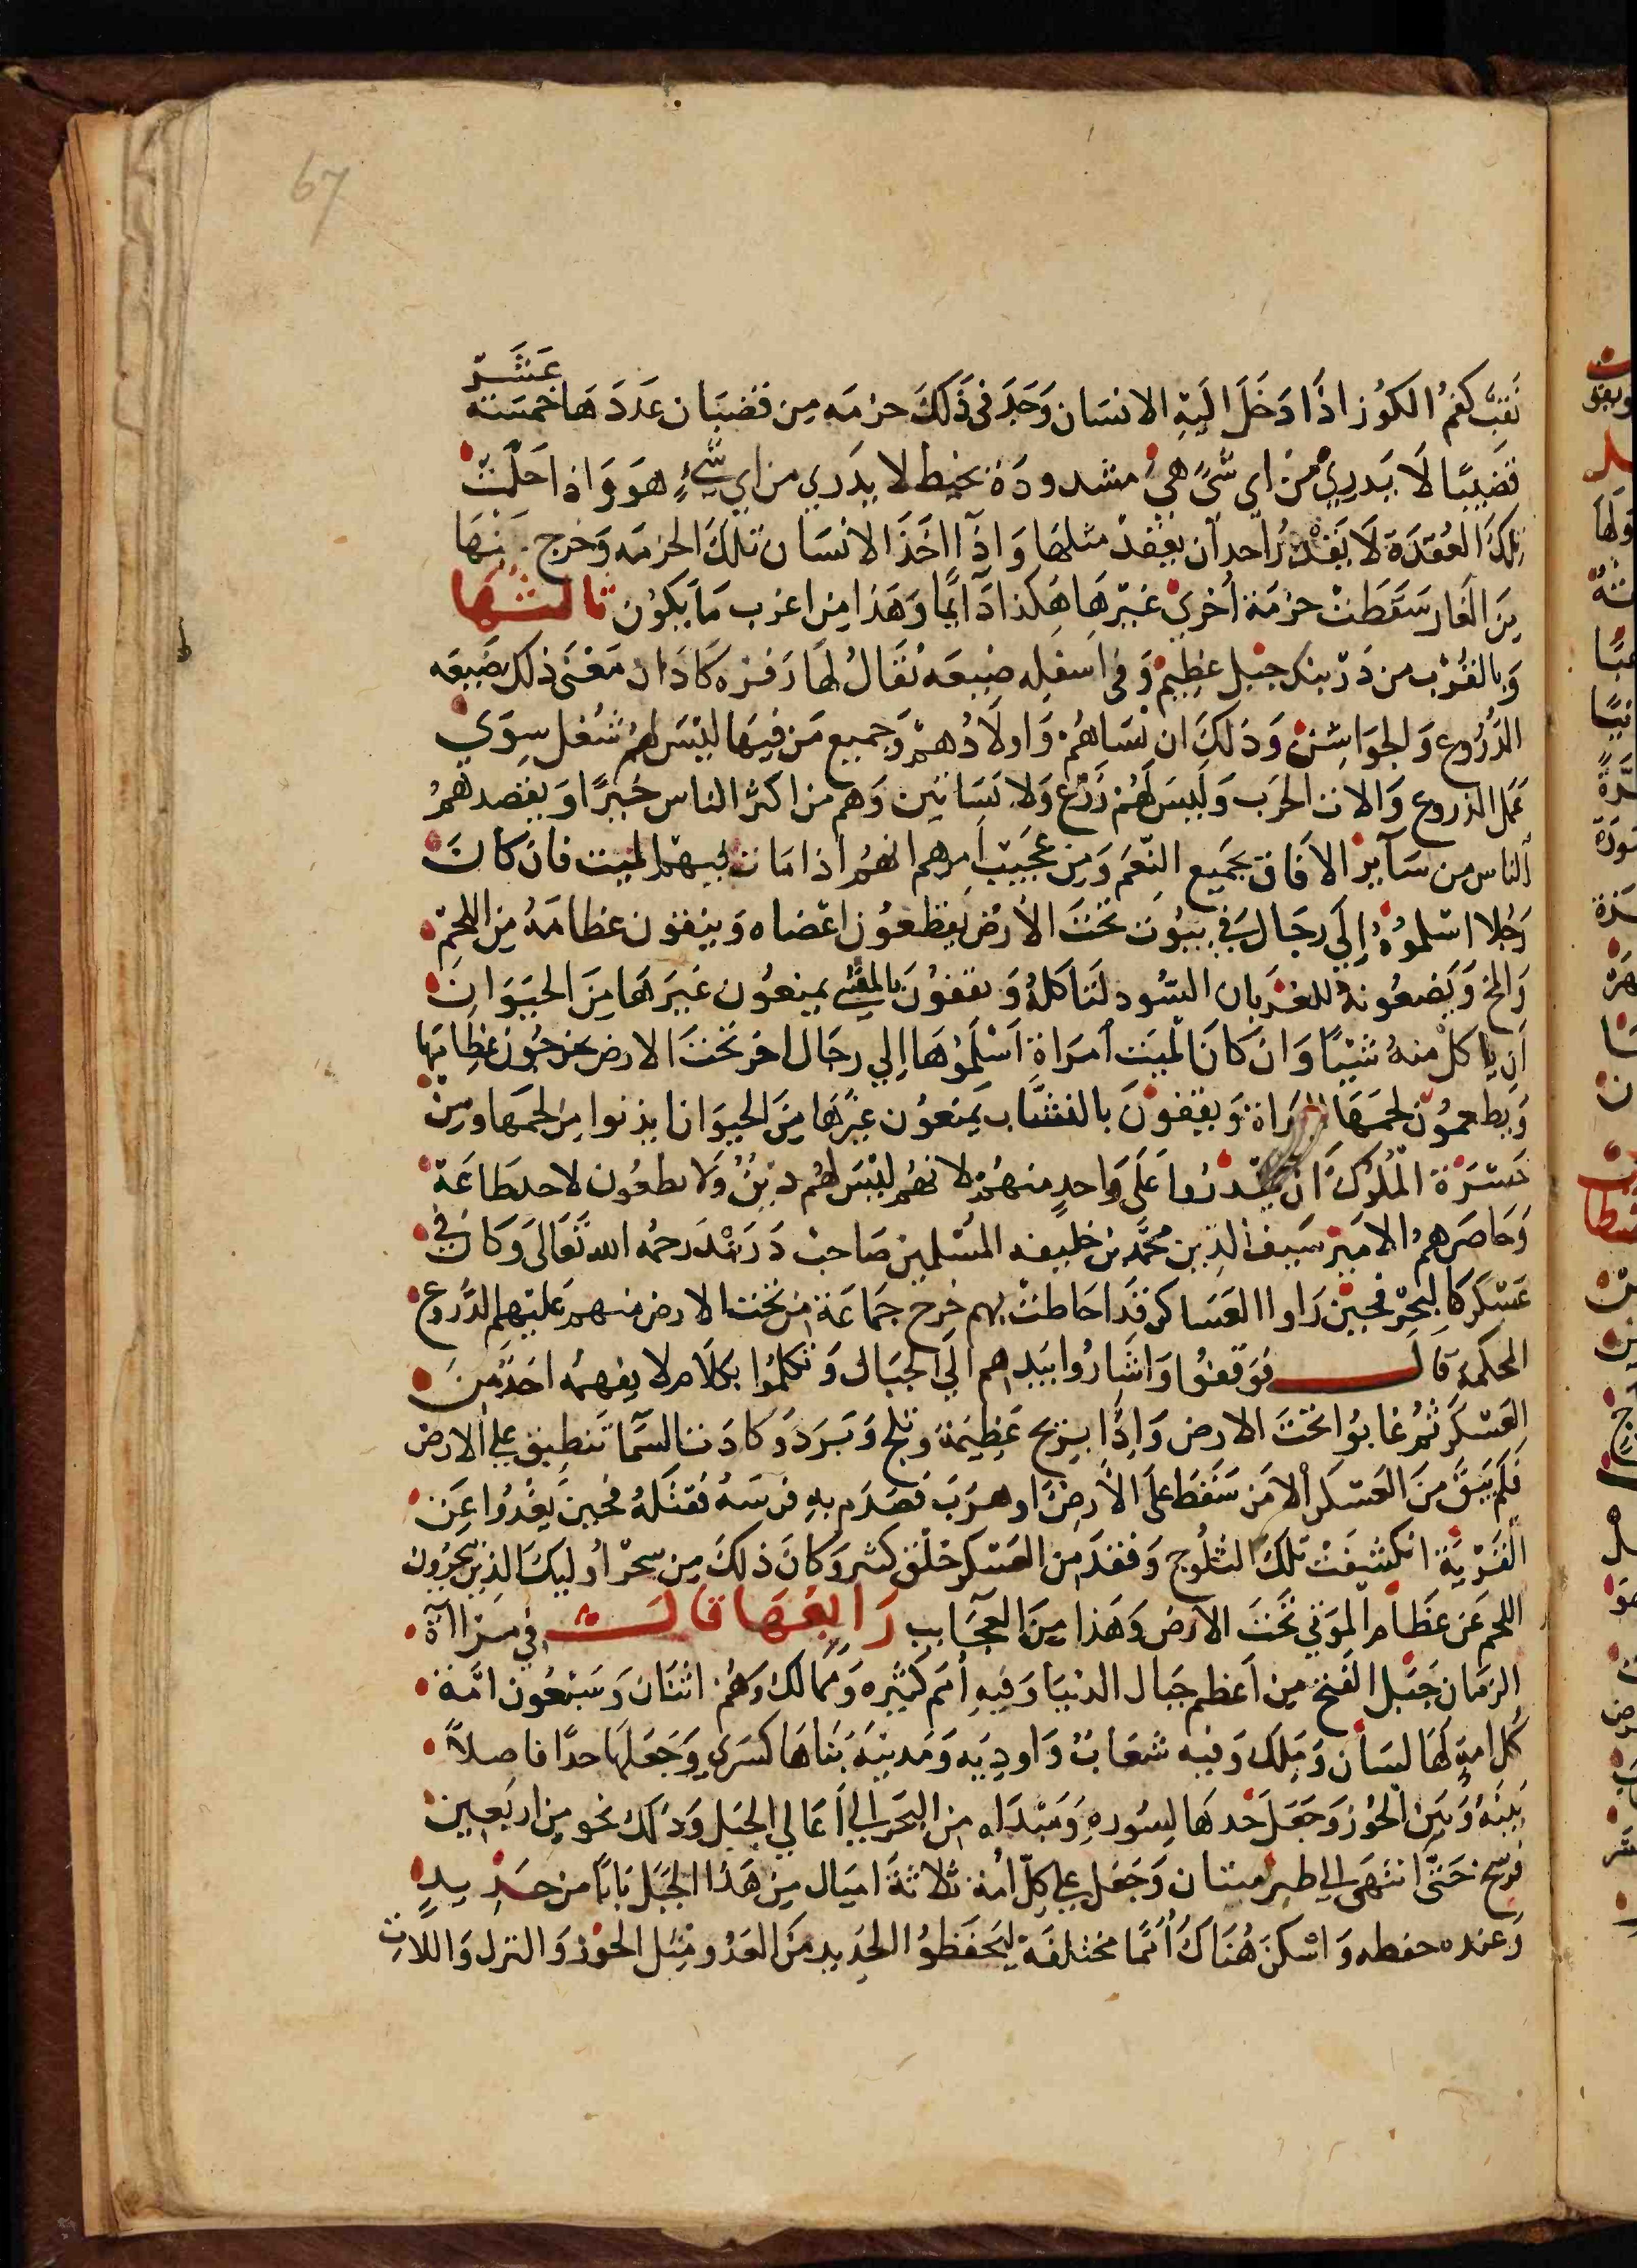 67
نَقبّ كفمُ الكوُز اذَا دَخَلَ اليَهِ الانسَان وَجَدَ فى ذَلَكَ حزمَه مِن قضبَان عَدَدَ هَا خمسَة عَشَر
قضَيبًا لَا يَدرِيْ مْن اي شَىً هىَ مشدودَة بخيط لا يدَري من اي شيءٍ هوَ وَاذا حَلْت
تِلكَ العُقدَة لَا يَقْدرُ احد اَن يعقدْ مثلهَا وَاذَآ اخَذَ الانسَان تلكَ الحزمَه وَخرج بهَا
مِنَ الغَار سَقَطَتْ حزمَة اُخريْ غيْرهَا هَكذا دَآئمًا وَهَذا مِن اعزب مَا يكوُن ثالثها
وَبالقُرْب من دَرْبند جبَل عظِيمْ وَفى اسفِله ضيعَه تقَالُ لهَا زفزه كادَان مَعْنَى ذلك ضَيعَه
الدُرُوع وَالجوَاشنْ وَذلكَ ان نسَاهُم وَاولَادُهمْ وَجميع مَن فيهَا ليْسَ لهُم شغل سِوَي
عَمل الدروع وَالات الحرَب وَليسَ لهُم زَرْع وَلا بَسَاتين وَهم من اكثر الناس خيرًا وَيقصدهمُ
اَلناس من سَآيرْ الاَفاق بجَميع النِّعَم وَمِن عجَيبْ اَمرهم انهُم اذا مَات فيهمُ الميت فاَن كَانَ
رَجُلا اسْلموُهُ اِلَي رجَال في بيُوت تحتَ الاَرضْ يقطعُون اعْضاه وَينقون عظامَهُ مِن اللحِمْ
وَالمخ وَيَضعُونهْ للغربان السُود لتَاكلهُ وَيقفوْنَ بالقسي يمنعُون غيَرهَا مِنَ الحيَوَانَ
اَن ياكل منهُ شيْيًا وَانْ كانَ الميَت اَمرَاة اَسْلَموُهَا اِلي رجَال اخرْ تحتَ الارض يخرجُون عظِامَها
وَيطعموُن لحمهَا وَيقفونَ بالنشَّاب يَمنعوُن غيْرهَا مِنَ الحيوَان ان يدنوا مِن لحمهَا ومِن
حَسْرَة المُلُوكَ اَن علَى وَاحدٍ منهُمْ لانهُم ليْسَ لهُم دِيْنٌ وَلَا يطعُون لاحد طاعَة
وَحَاصَرهمُ الامَيرْ سَيف الدِين محمَّد بن خليفه المسْلمين صَاحبْ دَرَبنْد رَحمُه الله تَعَالَى وَكانَ في
عَسْكر كالبحرْ فحيْن رَاوا العَسَاكر قدَ احَاطتْ بهم خرج جمَاعَة من تحت الارض منهم علَيْهِم الدُروع
المحكمة قال فوَقفوُا وَاشارُوا بَيدِهم اِلي الجبَال وَتكلموُا بكلَام لا يفهمُه احَدٌ مِنَ
العَسْكر ثُمْ غابوُا تحْتَ الارَض وَاِذَا بِريْح عَظِيمَة وَثلج وَبَرَد وَكادَت السَمَا تَنطبق علي الارض
فلَم يَبَق مْنَ العَسْكر اْلا مَن سَقَط علَى الاَرض او هرَبَ فصَدَم بهِ فرسَهُ فقتَلهُ فحينَ يعْدُوا عَن
القريَة انكشفتْ تلكَ الثلُوج وَفقدَ من العسْكر خلق كثير وَكانَ ذلكَ مِن سحْر اُوليكَ الذِين يجرُون
اللحم عَن عظَام الموَتي تحَتَ الاَرض وَهَذا مِنَ العجَايب رَابعَها قالت في مرَاآة
الزمَان جَبَل الفَتح من اَعظم جبَال الدنيَا وَفيِه اُمم كثيَره وَممالك وَهُم اثنَان وَسَبْعوُن امَّة
كُل امةٍ لهَا لسَان وَمَلك وَفيه شعَابٌ وَاودِيَه وَمدينَه بَنَاهَا كسرَي وَجَعَلَها حدًا فاصلاً
بَينَهُ وَبَين الخُوز وَجَعَل حَدهَا لِسُورِهِ وَمَبْدَاه من البَحَر اِلي اَعَالي الجبَل وَذلكَ نحو مِن اربَعين
فرسخ حَتَّى انتهىَ الي وَجَعَل علي كلّ اُمة ثلاثةَ اميَال مِن هَذَا الجَبَل بَابًا من حَديدٍ
وَعنده حفظه وَاسْكنَ هُنَاكَ اُمَمًا مختلفَة ليَحفَظوُ الحَديد مِنَ العَدُو مثل الخوْز وَالترك وَاللاتِ